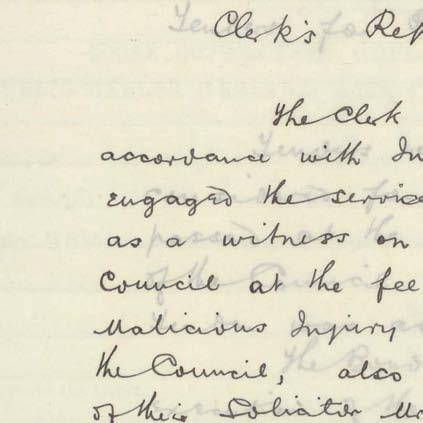 Clerk's Rep
The Clerk
accordance with In
engaged the service
as a witness on
Council at the fee
Malicious Injury
the Council, also
of their Solicitor Mr